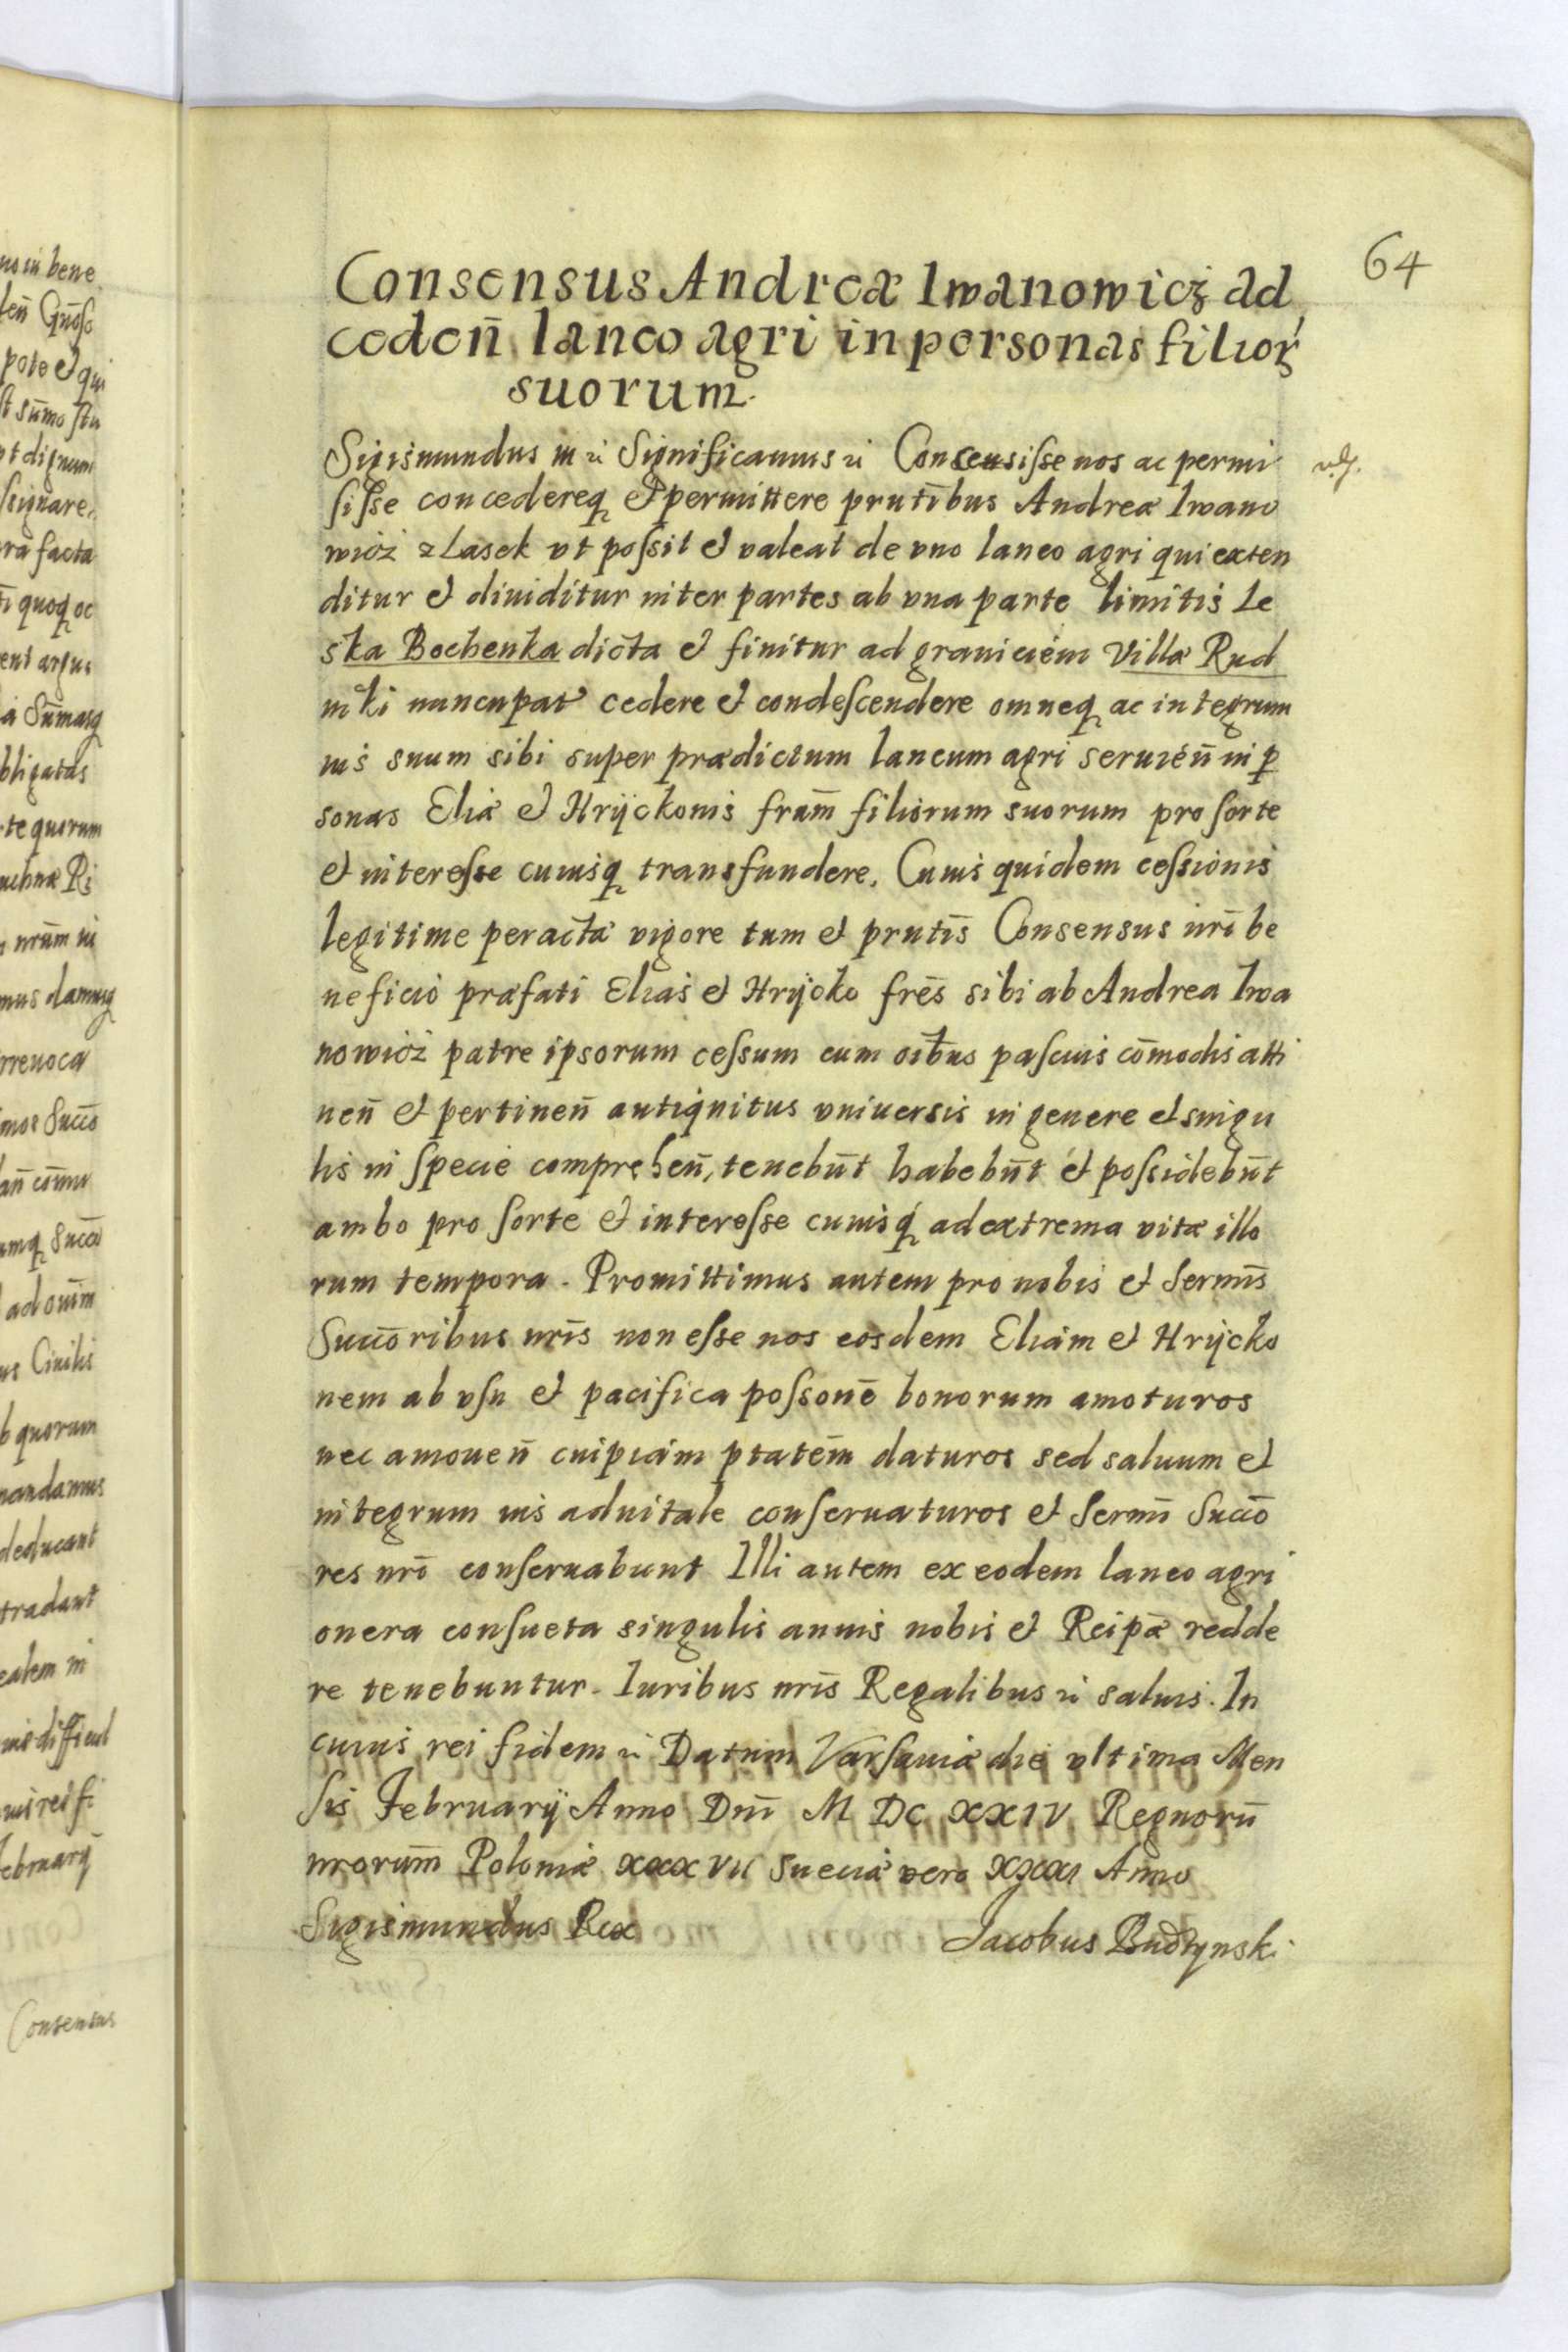 64
Consensus Andreæ Iwanowicz ad
ceden̄ laneo agri in personas filioꝝ
suorum.
Sigismundus III ꝛc Significamus ꝛc Consensisse nos ac permi
sisse concedereq̨ et permittere prntibus Andreæ Iwano
wicz z Lasek vt possit et valeat de vno laneo agri qui exten
ditur et diuiditur inter partes ab vna parte limitis Le
ska Bochenka dicta et finitur ad graniciem Villæ Rud
niki nuncupat cedere et condescendere omneq̨ ac integrum
ius suum sibi super prædictum laneum agri seruien̄ in p̱
sonas Eliæ et Hrÿckonis fram̄ filiorum suorum pro sorte
et interesse cuiusq̨ transfundere. Cuius quidem cessionis
legitime peractæ vigore tum et prntis̄ Consensus nrī be
neficio præfati Elias et Hrÿcko fres̄ sibi ab Andrea Iwa
nowicz patre ipsorum cessum cum oībus pascuis com̄odis atti
nen̄ et pertinen̄ antiquitus vniuersis in genere et singu
lis in specie comprehen̄, tenebūt habebūt et possidebūt
ambo pro sorte et interesse cuiusq̨ ad extrema vitæ illo
rum tempora. Promittimus autem pro nobis et Sermīs
Succōribus nrīs non esse nos eosdem Eliam et Hrÿcko
nem ab vsu et pacifica possonē bonorum amoturos
nec amouen̄ cuipiam ptatēm daturos sed saluum et
integrum ius aduitale conseruaturos et Sermī Succō
res nrī conseruabunt Illi autem ex eodem laneo agri
onera consueta singulis annis nobis et Reipǣ redde
re tenebuntur. Iuribus nrīs Regalibus ꝛc saluis. In
cuius rei fidem ꝛc Datum Varsauiæ die vltima Men
sis Februarÿ Anno Dnī M DC XXIV Regnorū
nrorum̄ Poloniæ XXXVII Sueciæ vero XXXI Anno
Sigismundus Rex
Jacobus Budzynski
Consensus